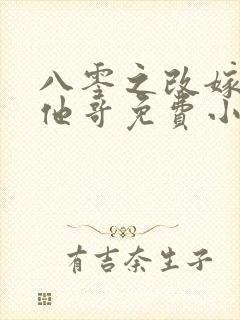 八零之改嫁
他哥免费小
有吉奈生子